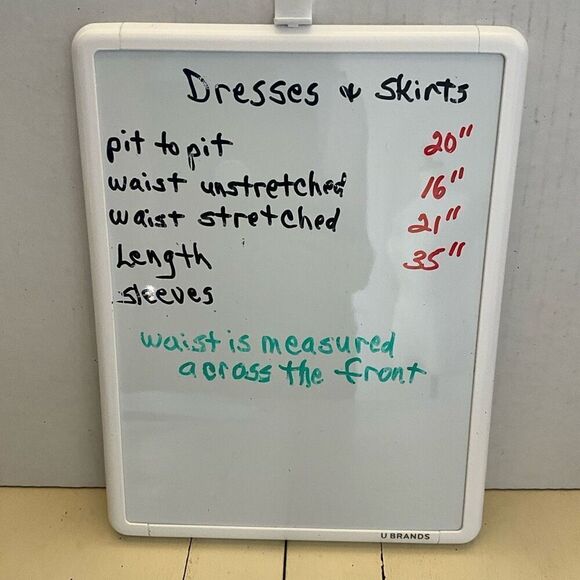 Dresses & Skirts
pit to pit 20"
waist unstretched 16"
waist stretched 21"
Length 35"
sleeves
waist is measured
across the front
U BRANDS